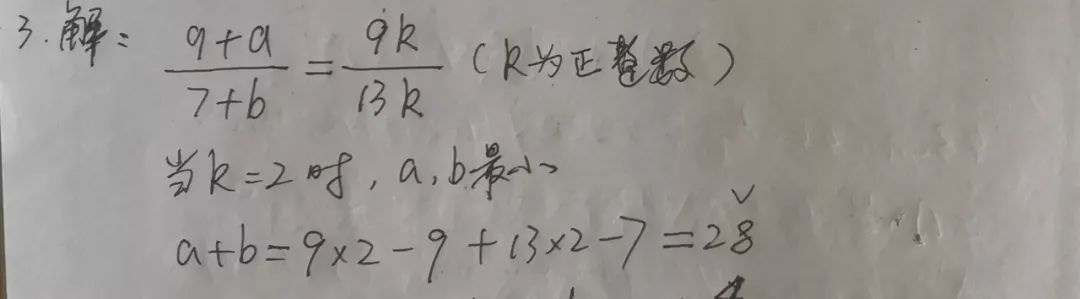 3.解： (9+a)/(7+b) = 9k/13k （k为正整数）
当k=2时，a,b最小
a+b=9×2-9+13×2-7=28